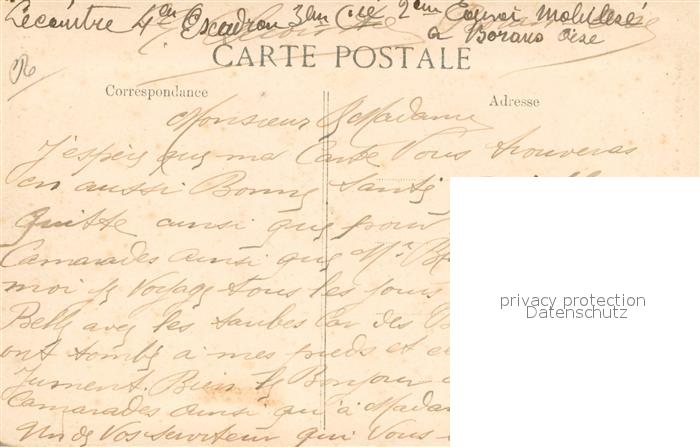 Lecomtre 4em Escadron 3em Cie 2em Convoi Mobilisé
a Borano Oise
CARTE POSTALE
Correspondance
Adresse
Monsieur & Madame
J'espère que ma Carte Vous trouveras
en aussi Bonne Santé
quitte ainsi que pour
Camarades ainsi que Mr
moi je Voyage tous les jours
Belle avec les car des
ont tombé a mes pieds et
Jument. Bien le Bonjour
Camarades ainsi qu'à Madam
Un de Vos serviteur qui Vous
privacy protection
Datenschutz